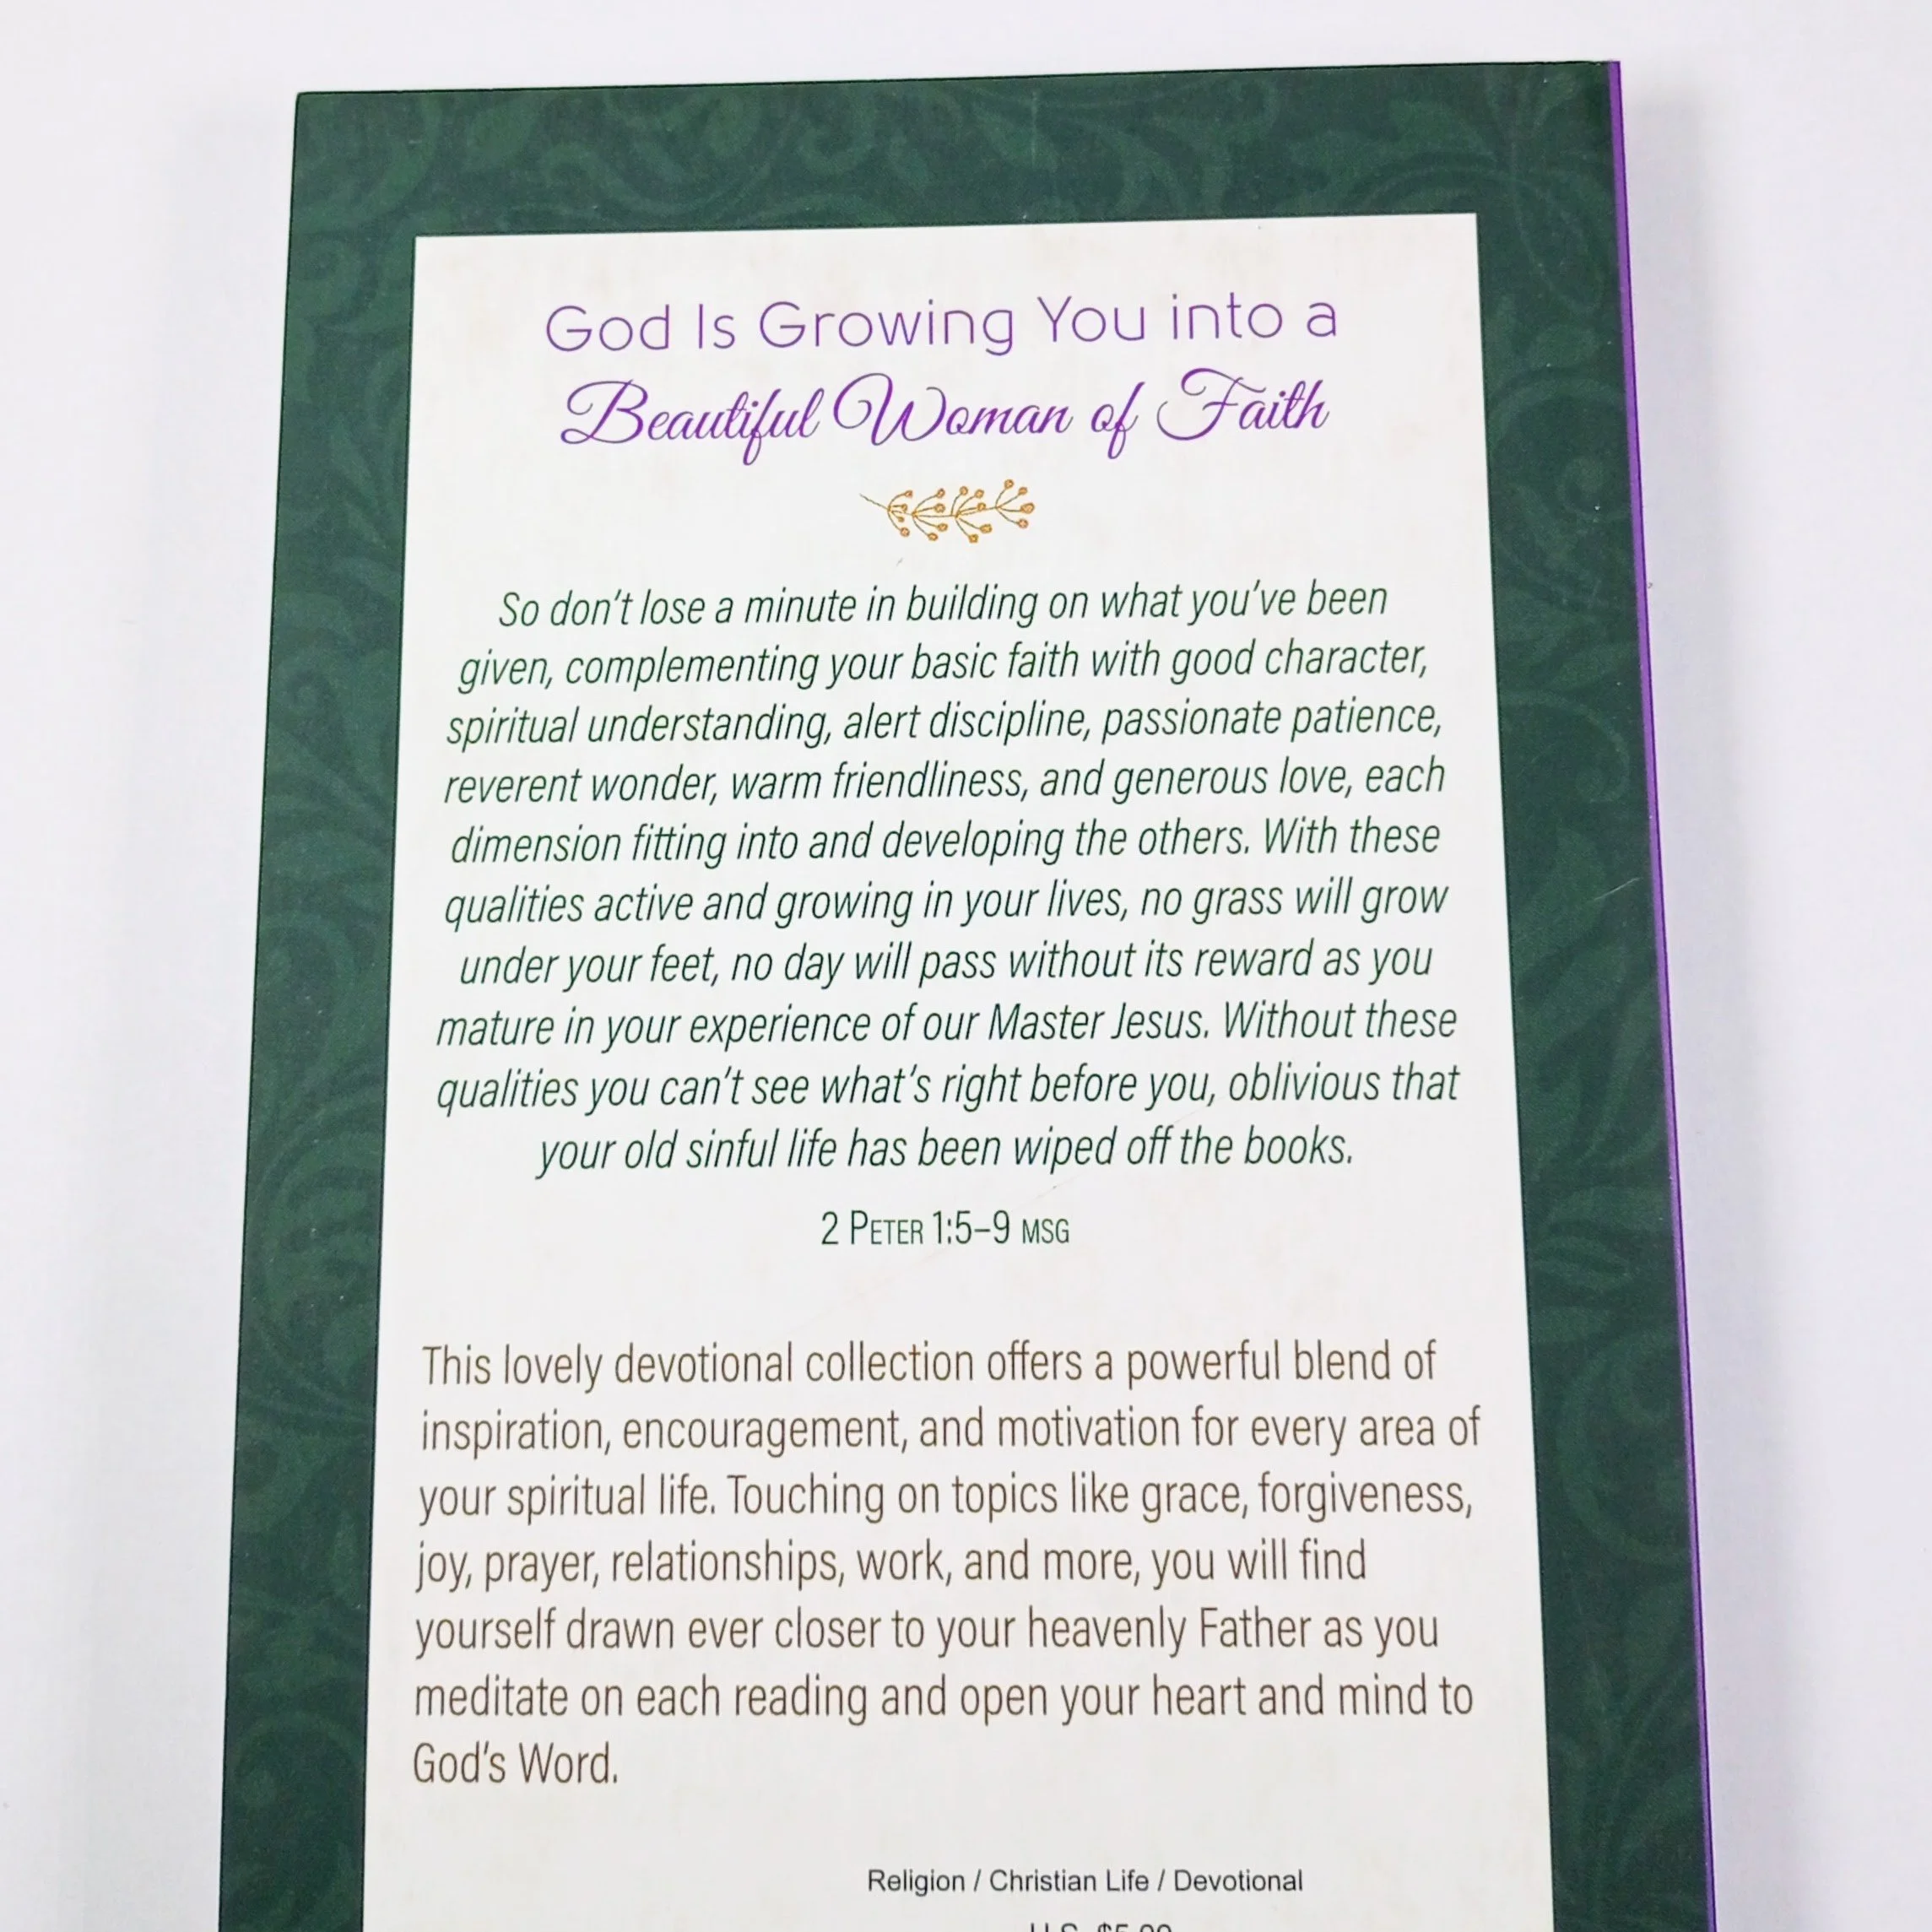 God Is Growing You into a
Beautiful Woman of Faith
So don't lose a minute in building on what you've been
given, complementing your basic faith with good character,
spiritual understanding, alert discipline, passionate patience,
reverent wonder, warm friendliness, and generous love, each
dimension fitting into and developing the others. With these
qualities active and growing in your lives, no grass will grow
under your feet, no day will pass without its reward as you
mature in your experience of our Master Jesus. Without these
qualities you can't see what's right before you, oblivious that
your old sinful life has been wiped off the books.
2 PETER 1:5–9 MSG
This lovely devotional collection offers a powerful blend of
inspiration, encouragement, and motivation for every area of
your spiritual life. Touching on topics like grace, forgiveness,
joy, prayer, relationships, work, and more, you will find
yourself drawn ever closer to your heavenly Father as you
meditate on each reading and open your heart and mind to
God's Word.
Religion / Christian Life / Devotional